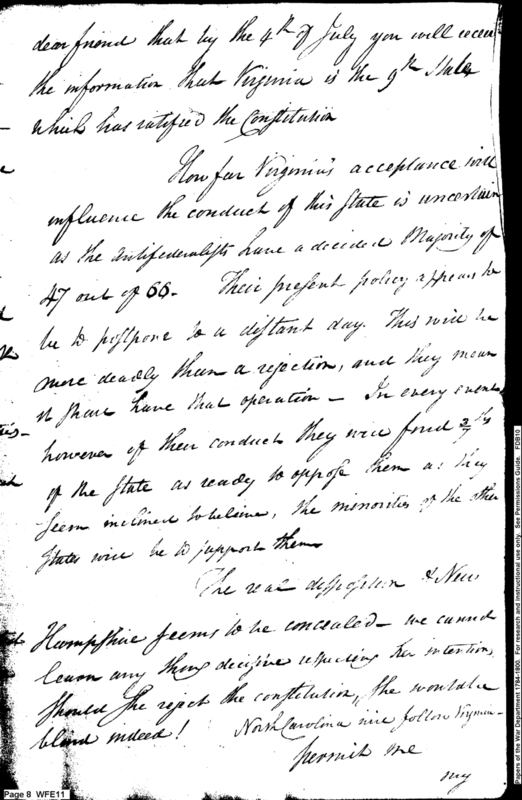 dear friend that by the 4th of July you will receive
the information that Virginia is the 9th State
which has ratified the Constitution
How far Virginia's acceptance will
influence the conduct of this State is uncertain
as the antifederalists have a decided Majority of
47 out of 66. Their present policy appears to
be to postpone to a distant day. This will be
more deadly than a rejection, and they mean
it shall have that operation — In every event
however of their conduct they will find 2/7ths
of the State as ready to oppose them as they
seem inclined to believe, the minorities of the other
States will be to support them
The real disposition of New
Hampshire seems to be concealed — we cannot
learn any thing decisive respecting her intention,
should she reject the constitution, she would be
blind indeed! North Carolina will follow Virginia —
permit me
my
Page 8 WFE11
Papers of the War Department 1784-1800. For research and instructional use only. See Permissions Guide. FDB10